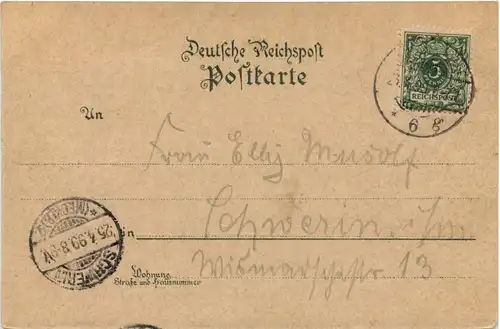 Deutsche Reichspost
Postkarte
5
REICHSPOST
6 8
An
Frau Elly Mudolf
Schwerin i/m
in
Wismarschestr 13
Wohnung
Straße und Hausnummer
SCHWERIN
25.4.99.8-9V.
(MECKLB)